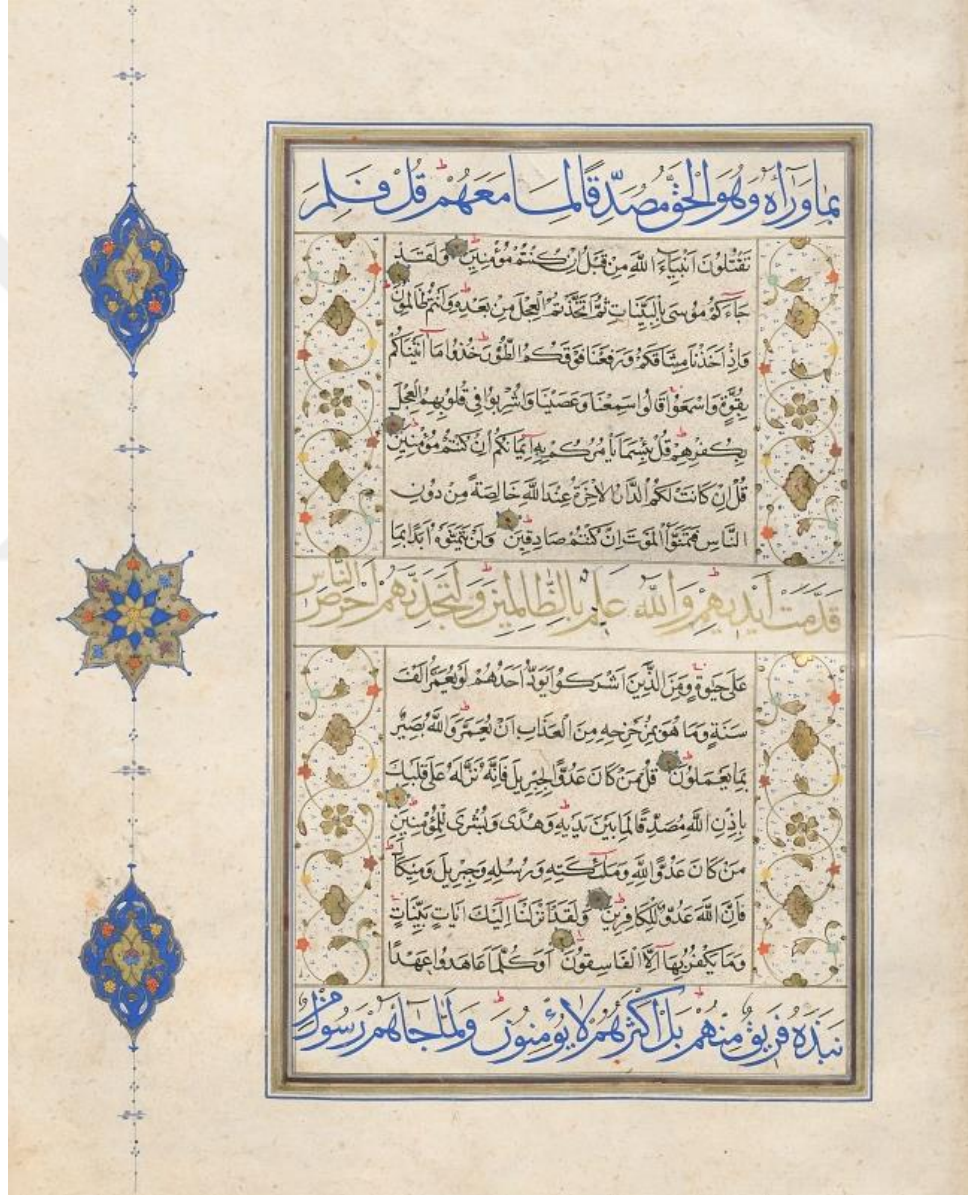 بِمَا وَرَاءَهُ وَهُوَ الْحَقُّ مُصَدِّقًا لِمَا مَعَهُمْ قُلْ فَلِمَ
تَقْتُلُونَ أَنْبِيَاءَ اللَّهِ مِنْ قَبْلُ إِنْ كُنْتُمْ مُؤْمِنِينَ وَلَقَدْ
جَاءَكُمْ مُوسَى بِالْبَيِّنَاتِ ثُمَّ اتَّخَذْتُمُ الْعِجْلَ مِنْ بَعْدِهِ وَأَنْتُمْ ظَالِمُونَ
وَإِذْ أَخَذْنَا مِيثَاقَكُمْ وَرَفَعْنَا فَوْقَكُمُ الطُّورَ خُذُوا مَا آتَيْنَاكُمْ
بِقُوَّةٍ وَاسْمَعُوا قَالُوا سَمِعْنَا وَعَصَيْنَا وَأُشْرِبُوا فِي قُلُوبِهِمُ الْعِجْلَ
بِكُفْرِهِمْ قُلْ بِئْسَمَا يَأْمُرُكُمْ بِهِ إِيمَانُكُمْ إِنْ كُنْتُمْ مُؤْمِنِينَ
قُلْ إِنْ كَانَتْ لَكُمُ الدَّارُ الْآخِرَةُ عِنْدَ اللَّهِ خَالِصَةً مِنْ دُونِ
النَّاسِ فَتَمَنَّوُا الْمَوْتَ إِنْ كُنْتُمْ صَادِقِينَ وَلَنْ يَتَمَنَّوْهُ أَبَدًا بِمَا
قَدَّمَتْ أَيْدِيهِمْ وَاللَّهُ عَلِيمٌ بِالظَّالِمِينَ وَلَتَجِدَنَّهُمْ أَحْرَصَ النَّاسِ
عَلَى حَيٰوةٍ وَمِنَ الَّذِينَ أَشْرَكُوا يَوَدُّ أَحَدُهُمْ لَوْ يُعَمَّرُ أَلْفَ
سَنَةٍ وَمَا هُوَ بِمُزَحْزِحِهِ مِنَ الْعَذَابِ أَنْ يُعَمَّرَ وَاللَّهُ بَصِيرٌ
بِمَا يَعْمَلُونَ قُلْ مَنْ كَانَ عَدُوًّا لِجِبْرِيلَ فَإِنَّهُ نَزَّلَهُ عَلَى قَلْبِكَ
بِإِذْنِ اللَّهِ مُصَدِّقًا لِمَا بَيْنَ يَدَيْهِ وَهُدًى وَبُشْرَى لِلْمُؤْمِنِينَ
مَنْ كَانَ عَدُوًّا لِلَّهِ وَمَلٰئِكَتِهِ وَرُسُلِهِ وَجِبْرِيلَ وَمِيكَالَ
فَإِنَّ اللَّهَ عَدُوٌّ لِلْكَافِرِينَ وَلَقَدْ أَنْزَلْنَا إِلَيْكَ آيَاتٍ بَيِّنَاتٍ
وَمَا يَكْفُرُ بِهَا إِلَّا الْفَاسِقُونَ أَوَكُلَّمَا عَاهَدُوا عَهْدًا
نَبَذَهُ فَرِيقٌ مِنْهُمْ بَلْ أَكْثَرُهُمْ لَا يُؤْمِنُونَ وَلَمَّا جَاءَهُمْ رَسُولٌ مِنْ